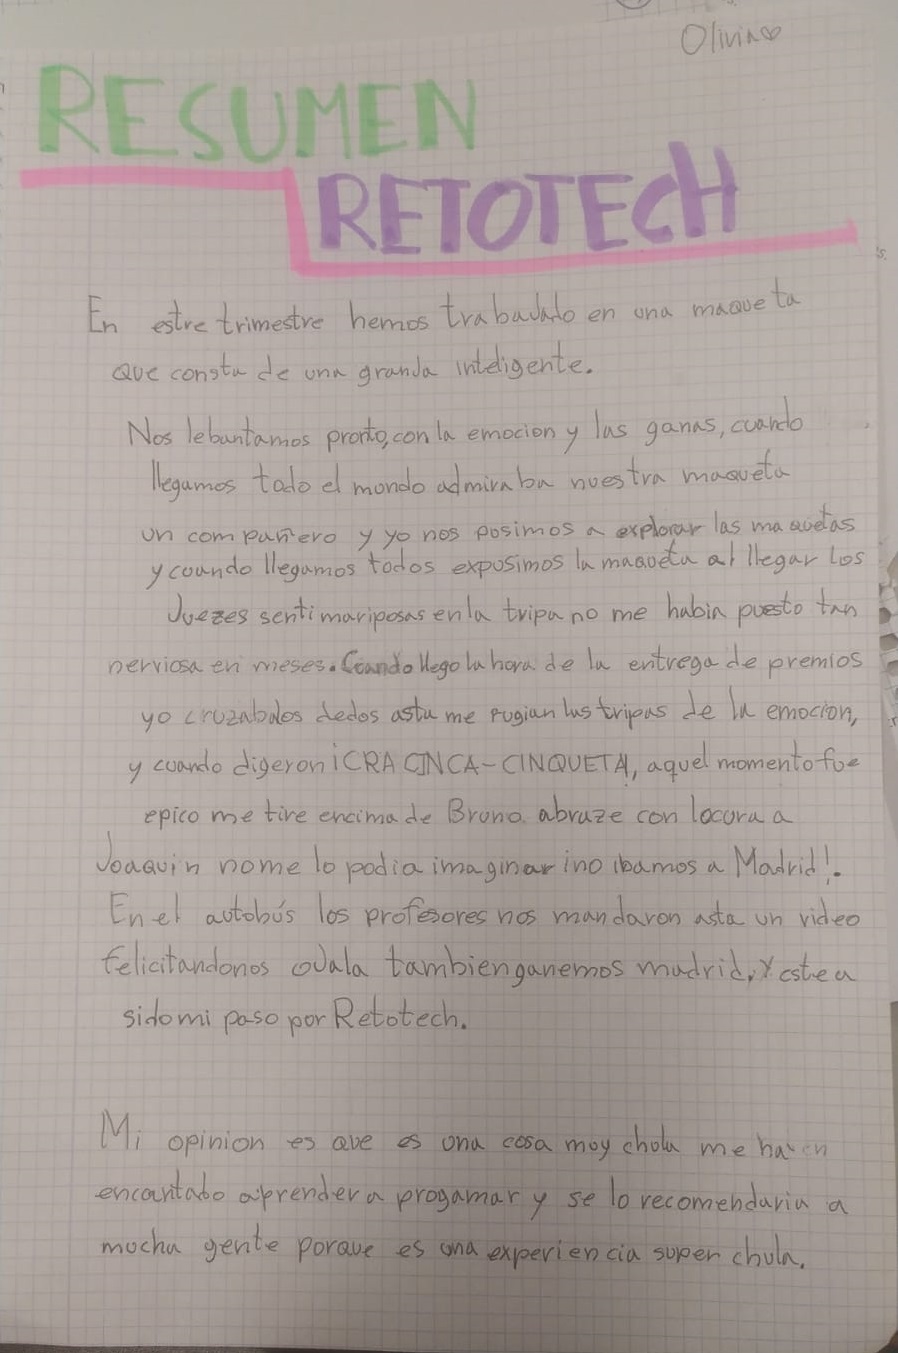 Olivia♡
RESUMEN
RETOTECH
En estre trimestre hemos trabadado en una maqueta
que consta de una granda inteligente.
Nos lebantamos pronto, con la emocion y las ganas, cuando
llegamos todo el mundo admiraba nuestra maqueta
un compañero y yo nos posimos a explorar las maquetas
y cuando llegamos todos exposimos la maqueta al llegar los
Juezes senti mariposas en la tripa no me habia puesto tan
nerviosa en meses. Cuando llego la hora de la entrega de premios
yo cruzaba los dedos asta me rugian las tripas de la emocion,
y cuando digeron ¡CRA CINCA-CINQUETA!, aquel momento fue
epico me tire encima de Bruno abraze con locura a
Joaquin no me lo podia imaginar ¡nos ibamos a Madrid!.
En el autobús los profesores nos mandaron asta un video
felicitandonos oJala tambien ganemos madrid, Y este a
sido mi paso por Retotech.
Mi opinion es que es una cosa muy chula me
encantado aprender a progamar y se lo recomendaria a
mucha gente porque es una experiencia super chula.